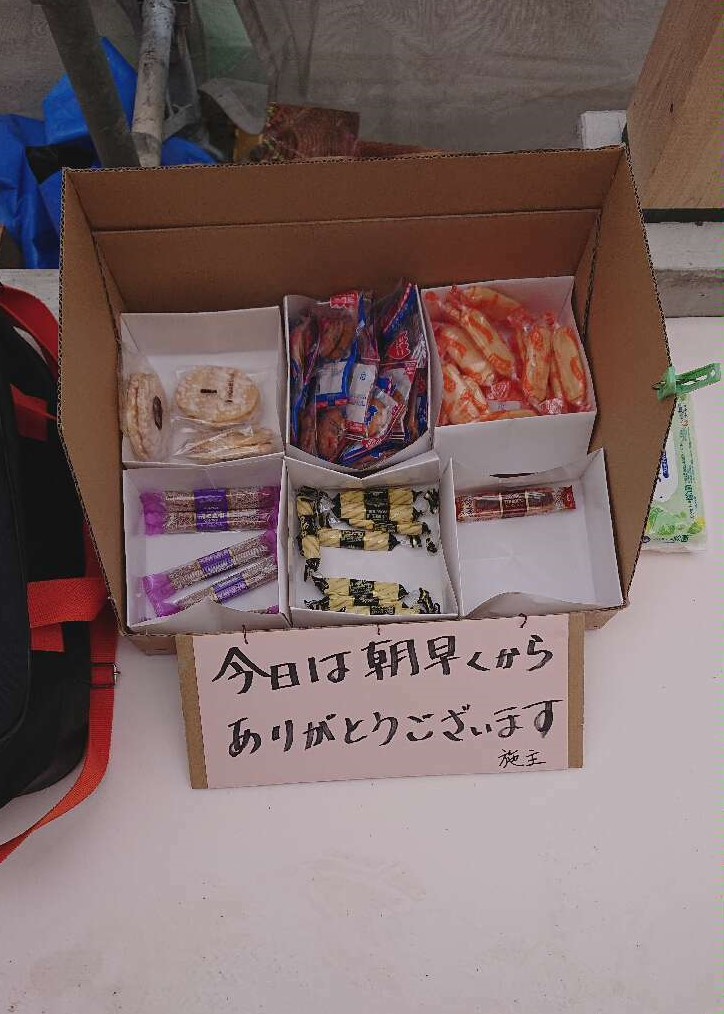 今日は朝早くから
ありがとうございます
施主